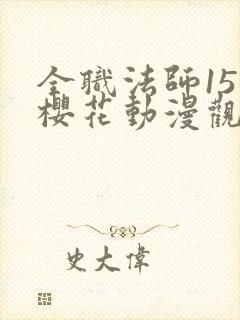 全職法師15
櫻花動漫觀
史大偉